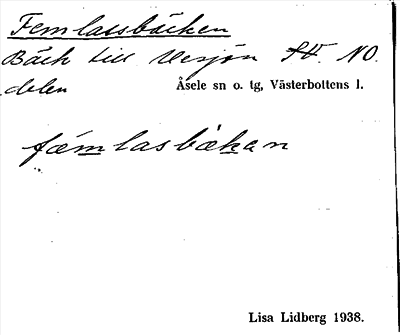 Femlassbäcken
Bäck till Vesjön NO.
delen
Åsele sn o. tg, Västerbottens l.
fæmlasbäkan
Lisa Lidberg 1938.